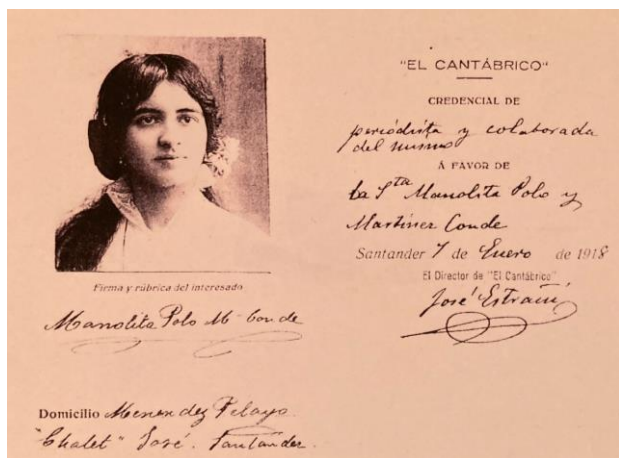 Firma y rúbrica del interesado
Manolita Polo M- Conde
Domicilio Menendez Pelayo.
"Chalet" José. Santander.
"EL CANTÁBRICO"
CREDENCIAL DE
periódista y colaborada
del mismo
Á FAVOR DE
la Sta Manolita Polo y
Martinez Conde
Santander 7 de Enero de 1918
El Director de "El Cantábrico"
José Estrañi